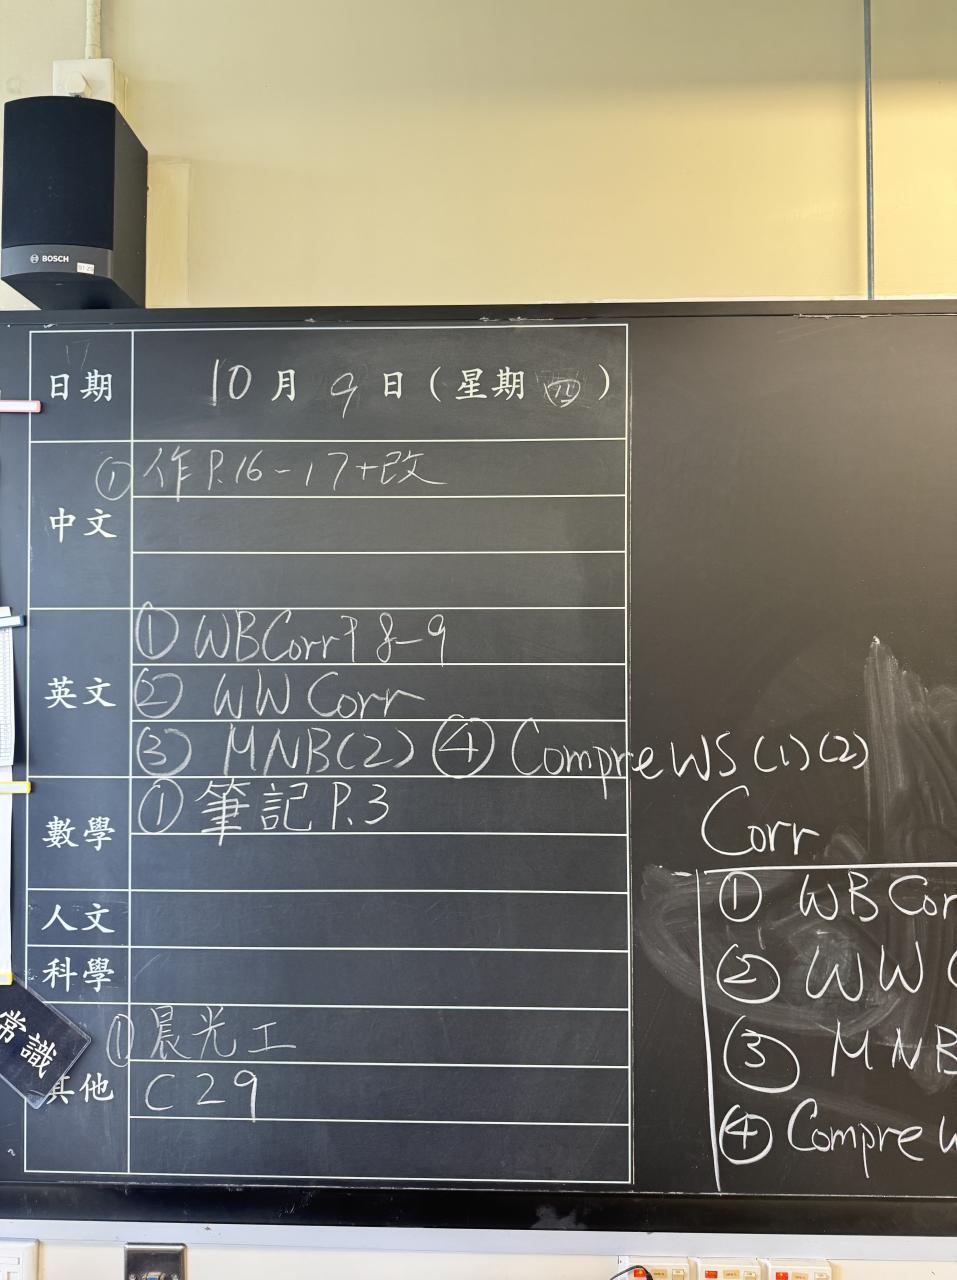 BOSCH
日期 10月9日(星期四)
中文
① 作P.16-17+改
英文
① WBCorr P8-9
② WW Corr
③ MNB(2) ④ Compre WS(1)(2)
Corr
數學
① 筆記 P.3
人文
科學
常識
其他
① 晨光工
C29
① WB Cor
② WW C
③ MNB
④ Compre W